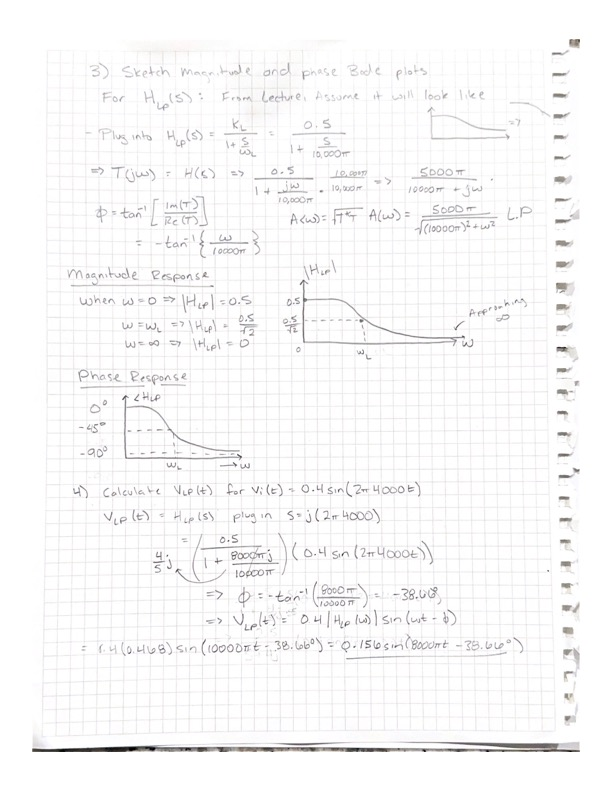 3) Sketch magnitude and phase Bode plots
For H_LP(s): From Lecture, Assume it will look like
=>
- Plug into H_LP(s) = K_L / (1 + s/ω_L) = 0.5 / (1 + s/10,000π)
=> T(jω) = H(s) => 0.5 / (1 + jω/10,000π) · 10,000π/10,000π => 5000π / (10000π + jω) .
φ = tan⁻¹ [ Im(T) / Re(T) ] A(ω) = √T*T A(ω) = 5000π / √((10000π)² + ω²) L.P
= -tan⁻¹ { ω / 10000π }
Magnitude Response
When ω = 0 => |H_LP| = 0.5
ω = ω_L => |H_LP| = 0.5/√2
ω = ∞ => |H_LP| = 0
|H_LP|
0.5
0.5/√2
0
ω_L
ω
Approaching
∞
Phase Response
∠H_LP
0°
-45°
-90°
ω_L → ω
4) Calculate V_LP(t) for Vi(t) = 0.4 sin(2π 4000t)
V_LP(t) = H_LP(s) plug in s = j(2π 4000)
4/5 j = ( 0.5 / (1 + 8000πj/10000π) ) (0.4 sin(2π 4000t))
=> φ = -tan⁻¹ (8000π / 10000π) = -38.66
=> V_LP(t) = 0.4 |H_LP(ω)| sin(ωt - φ)
= (0.468) sin(10000πt - 38.66°) = 0.156 sin(8000πt - 38.66°)